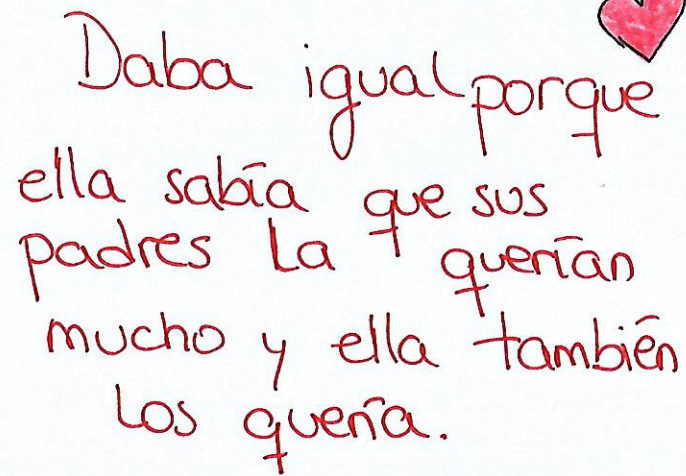 Daba igual porque
ella sabía que sus
padres la querían
mucho y ella también
los quería.